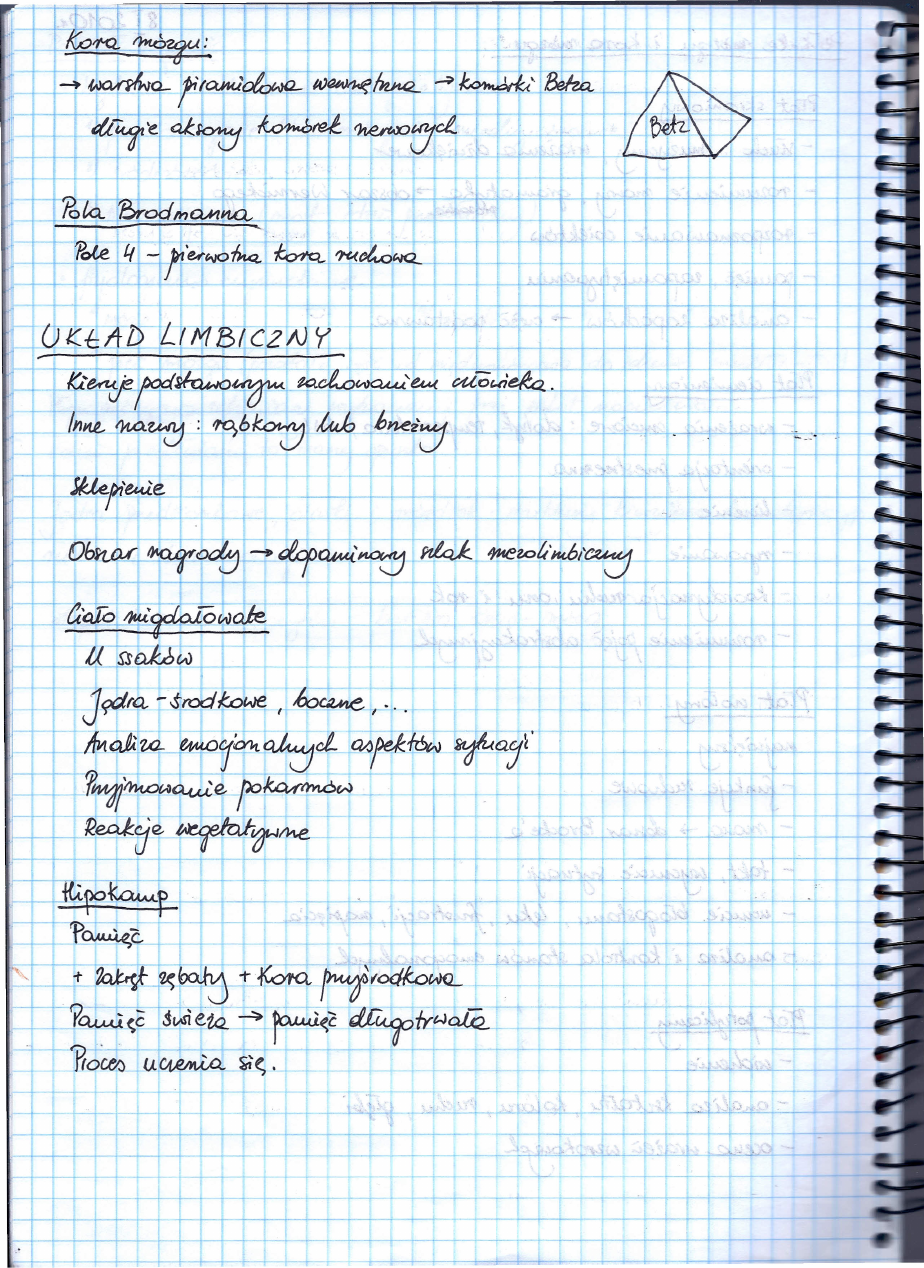 Kora mózgu:
→ warstwa piramidowa wewnętrzna → komórki Betza
długie aksony komórek nerwowych
Betz
Pola Brodmanna
Pole 4 – pierwotna kora ruchowa
UKŁAD LIMBICZNY
Kieruje podstawowym zachowaniem człowieka.
Inne nazwy : rąbkowy lub brzeżny
Sklepienie
Obszar nagrody → dopaminowy szlak mezolimbiczny
Ciało migdałowate
U ssaków
Jądra – środkowe, boczne, ...
Analiza emocjonalnych aspektów sytuacji
Przyjmowanie pokarmów
Reakcje wegetatywne
Hipokamp
Pamięć
+ Zakręt zębaty + Kora przyśrodkowa
Pamięć świeża → pamięć długotrwała
Proces uczenia się.